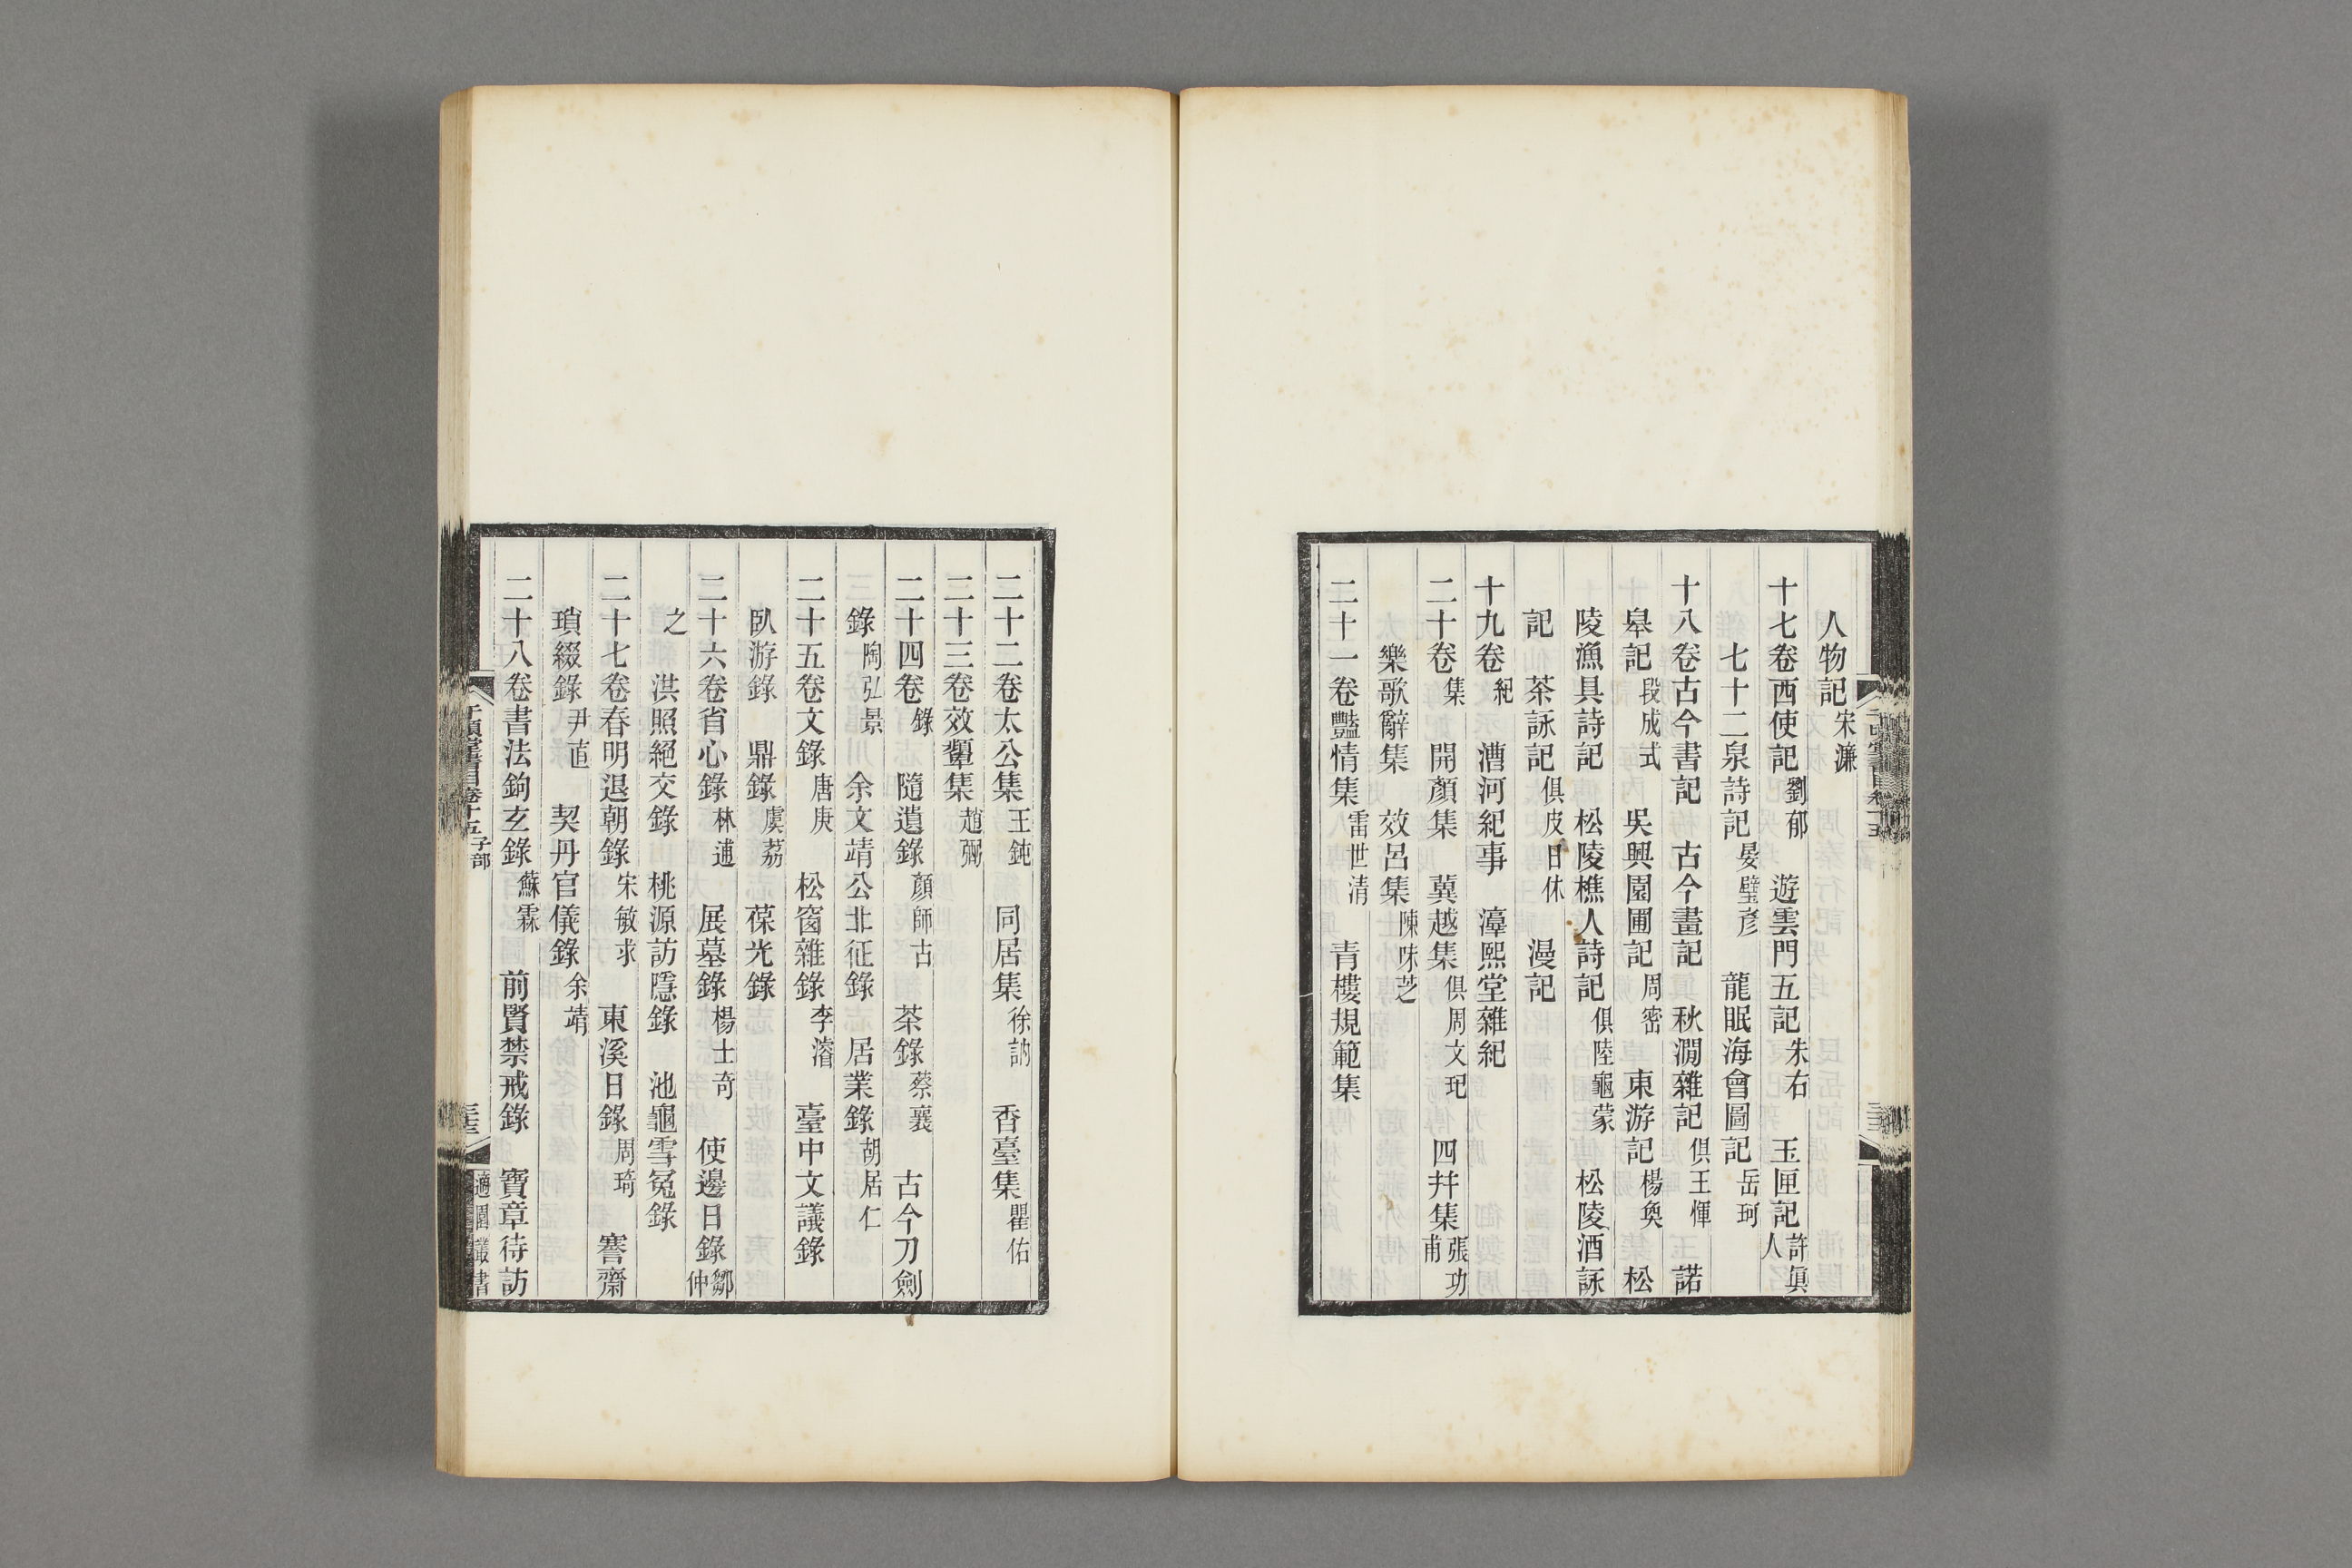 人物記宋濂
十七卷西使記劉郁　遊雲門五記朱右　玉匣記許眞人
七十二泉詩記晏璧彥　龍眠海會圖記岳珂
十八卷古今書記　古今畫記　秋澗雜記俱王惲　諾
皋記段成式　吳興園圃記周密　東游記楊奐　松
陵漁具詩記　松陵樵人詩記俱陸龜蒙　松陵酒詠
記　茶詠記俱皮日休　漫記
十九卷紀　漕河紀事　漳熙堂雜紀
二十卷集　開顏集　冀越集俱周文玘　四幷集張功甫
樂歌辭集　效呂集陳味芝
二十一卷豔情集雷世清　青樓規範集
二十二卷太公集王鈍　同居集徐訥　香臺集瞿佑
二十三卷效顰集趙弼
二十四卷錄　隨遺錄顏師古　茶錄蔡襄　古今刀劍
錄陶弘景　余文靖公北征錄　居業錄胡居仁
二十五卷文錄唐庚　松窗雜錄李濬　臺中文議錄
臥游錄　鼎錄虞荔　葆光錄
二十六卷省心錄林逋　展墓錄楊士奇　使邊日錄鄒仲
之　淇照絕交錄　桃源訪隱錄　池龜雪冤錄
二十七卷春明退朝錄宋敏求　東溪日錄周琦　謇齋
瑣綴錄尹直　契丹官儀錄余靖
二十八卷書法鉤玄錄蘇霖　前賢禁戒錄　寶章待訪
千頃堂書目卷十五子部
適園叢書